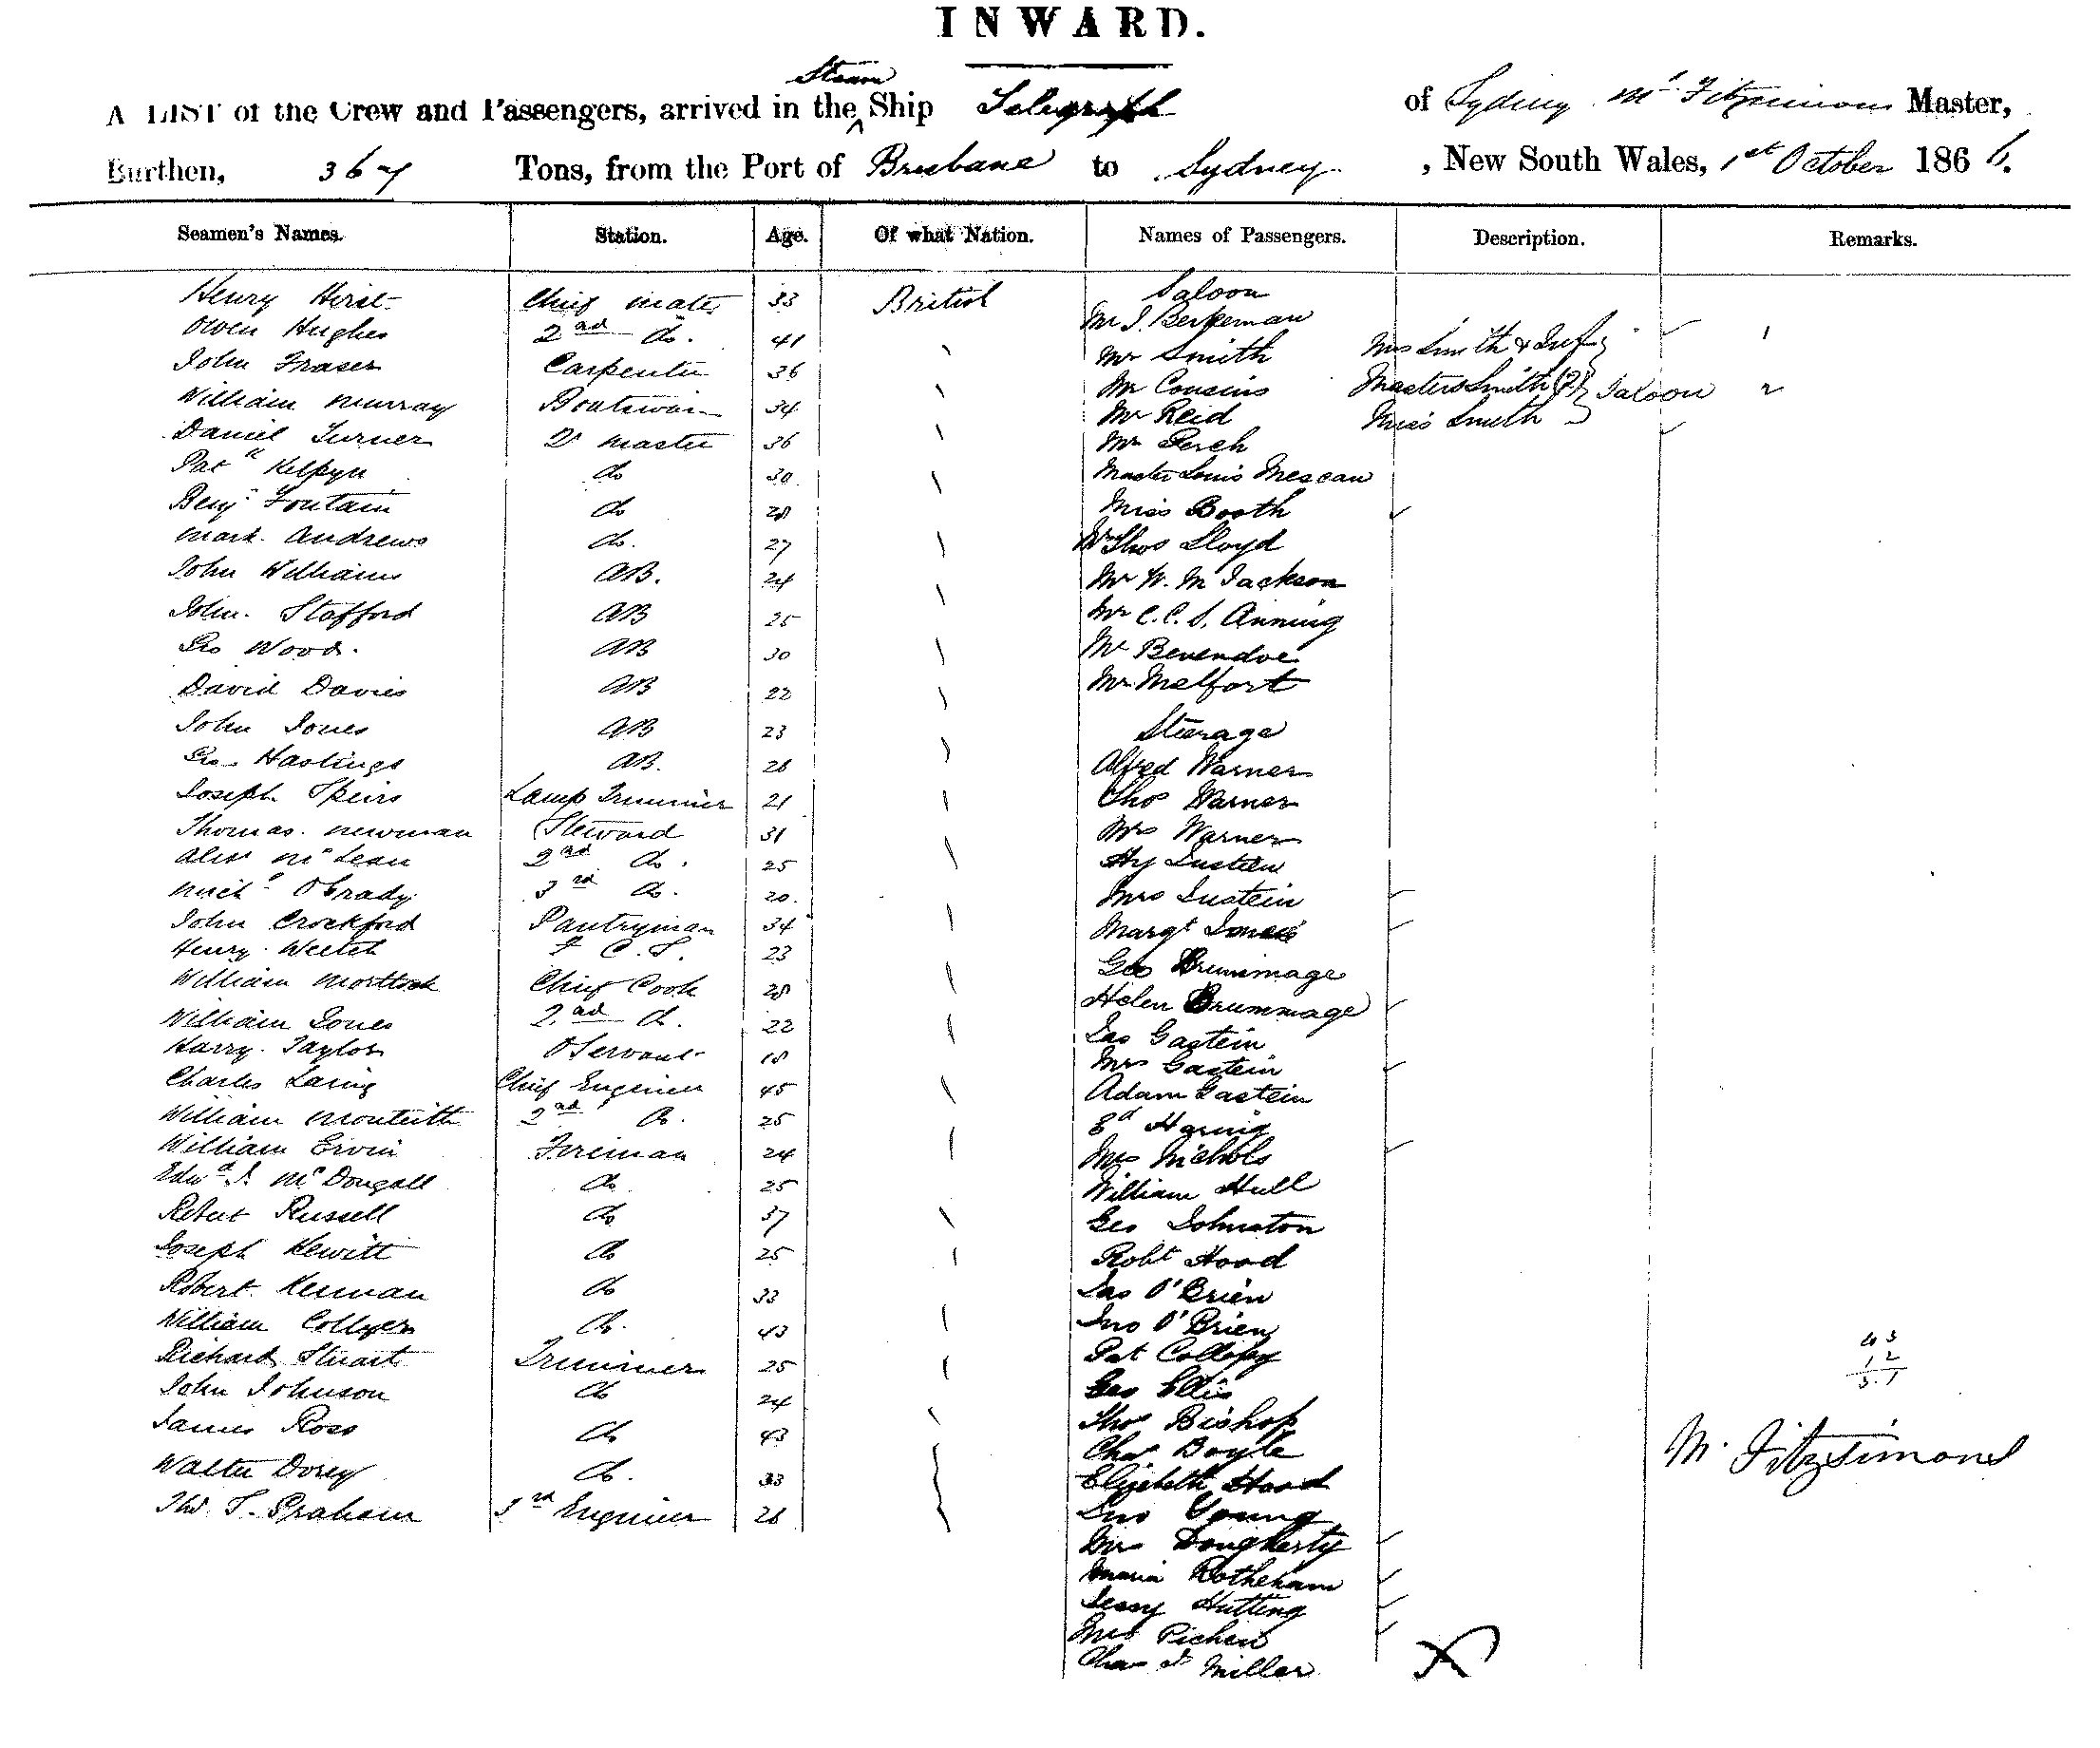 INWARD.
Steam
A LIST of the Crew and Passengers, arrived in the ^ Ship Telegraph of Sydney Mr Fitzsimons Master,
Burthen, 367 Tons, from the Port of Brisbane to Sydney, New South Wales, 1st October 1866.
Seamen's Names. Station. Age. Of what Nation. Names of Passengers. Description. Remarks.
Henry Hirst Chief mate 33 British Saloon
Mr J. Berkeman
Owen Hughes 2nd do. 41 Mr Smith Mrs Smith & Inft 1
John Fraser Carpenter 36 Mr Cousins Masters Smith (2) Saloon 2
William Murray Boatswain 34 Mr Reid Miss Smith
Daniel Turner Qr master 36 Mr Perch
Patk do 30 Master Louis
Benj Fountain do 28 Miss Booth
Mark Andrews do. 27 Mr Thos Lloyd
John Williams AB. 24 Mr W. M Jackson
John Stafford AB 25 Mr C. C. S. Anning
Geo Wood. AB 30 Mr
David Davies AB 22 Mr Melfort
John Jones AB 23 Steerage
Geo Hastings AB. 26 Alfred Warner
Joseph Speirs Lamp Trimmer 21 Thos Warner
Thomas Newman Steward 31 Mrs Warner
Alexr McLean 2nd do. 25 Hy Lustein
Michl O'Grady 3rd do. 20. Mrs Lustein
John Crockford Pantryman 34 Margt Jones
Henry 23 Geo Brummage
William Chief Cook 28 Helen Brummage
William Jones 2nd do. 22 Jas Gastein
Harry Taylor Servant 18 Mrs Gastein
Charles Laing Chief Engineer 45 Adam Gastein
William Monteith 2nd do. 25 Ed
William Ervin Fireman 24 Mrs Nichols
Edwd J. McDougall do. 25 William Hull
Robert Russell do 37 Geo Johnston
Joseph Hewitt do 25 Robt Hood
Robert Kennan do 33 Jas O'Brien
William Collyer do. 43 Jno O'Brien
Richard Stuart Trimmer 25 Pat Collopy
John Johnson do 24 Geo Ellis
James Ross do 43 Thos Bishop
Chas Boyle
Walter Dorey do. 33 Elizabeth Hood
Thos T. Graham 3rd Engineer 26 Jno Young
Mrs Dougherty
Maria Rotheham
Jessy Hutting
Mrs Pichen
Chas Miller
43
12
31
M. Fitzsimons